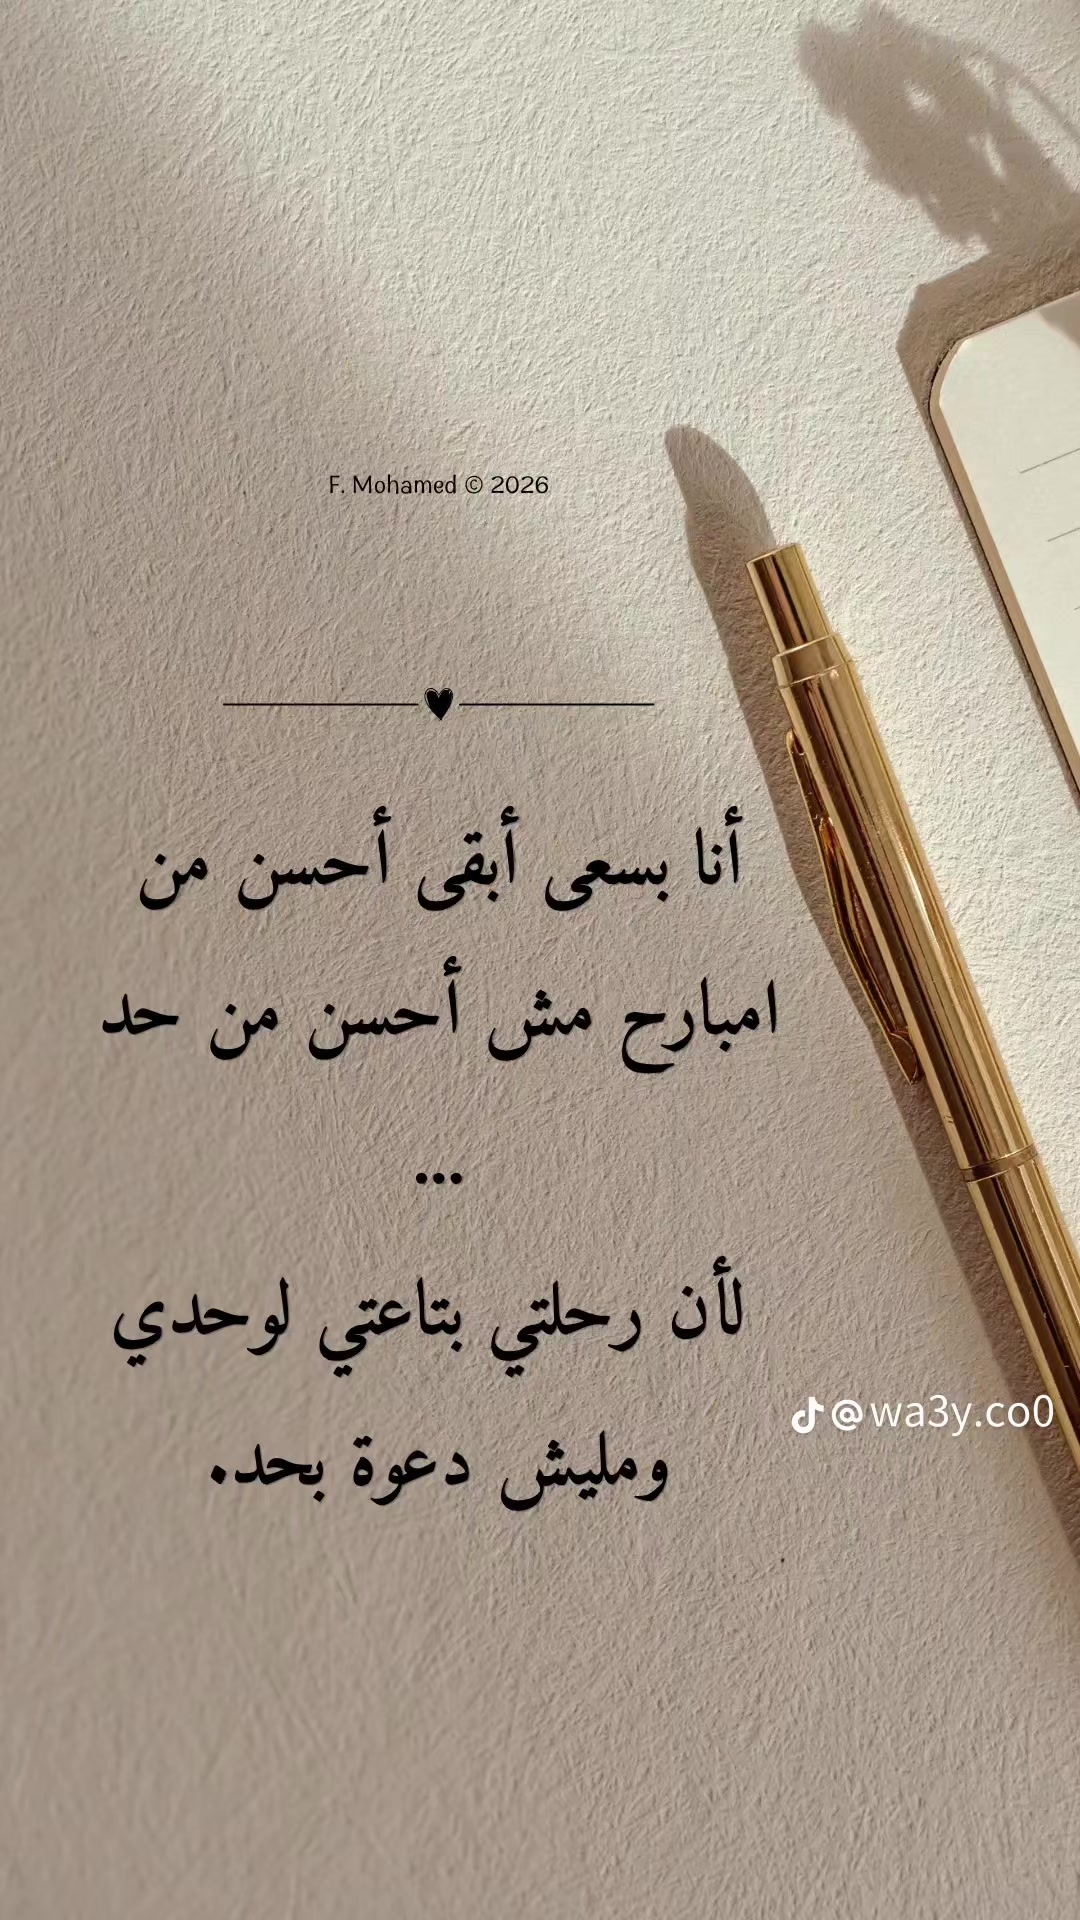 F. Mohamed © 2026
أنا بسعى أبقى أحسن من
امبارح مش أحسن من حد
...
لأن رحلتي بتاعتي لوحدي
ومليش دعوة بحد.
@wa3y.co0